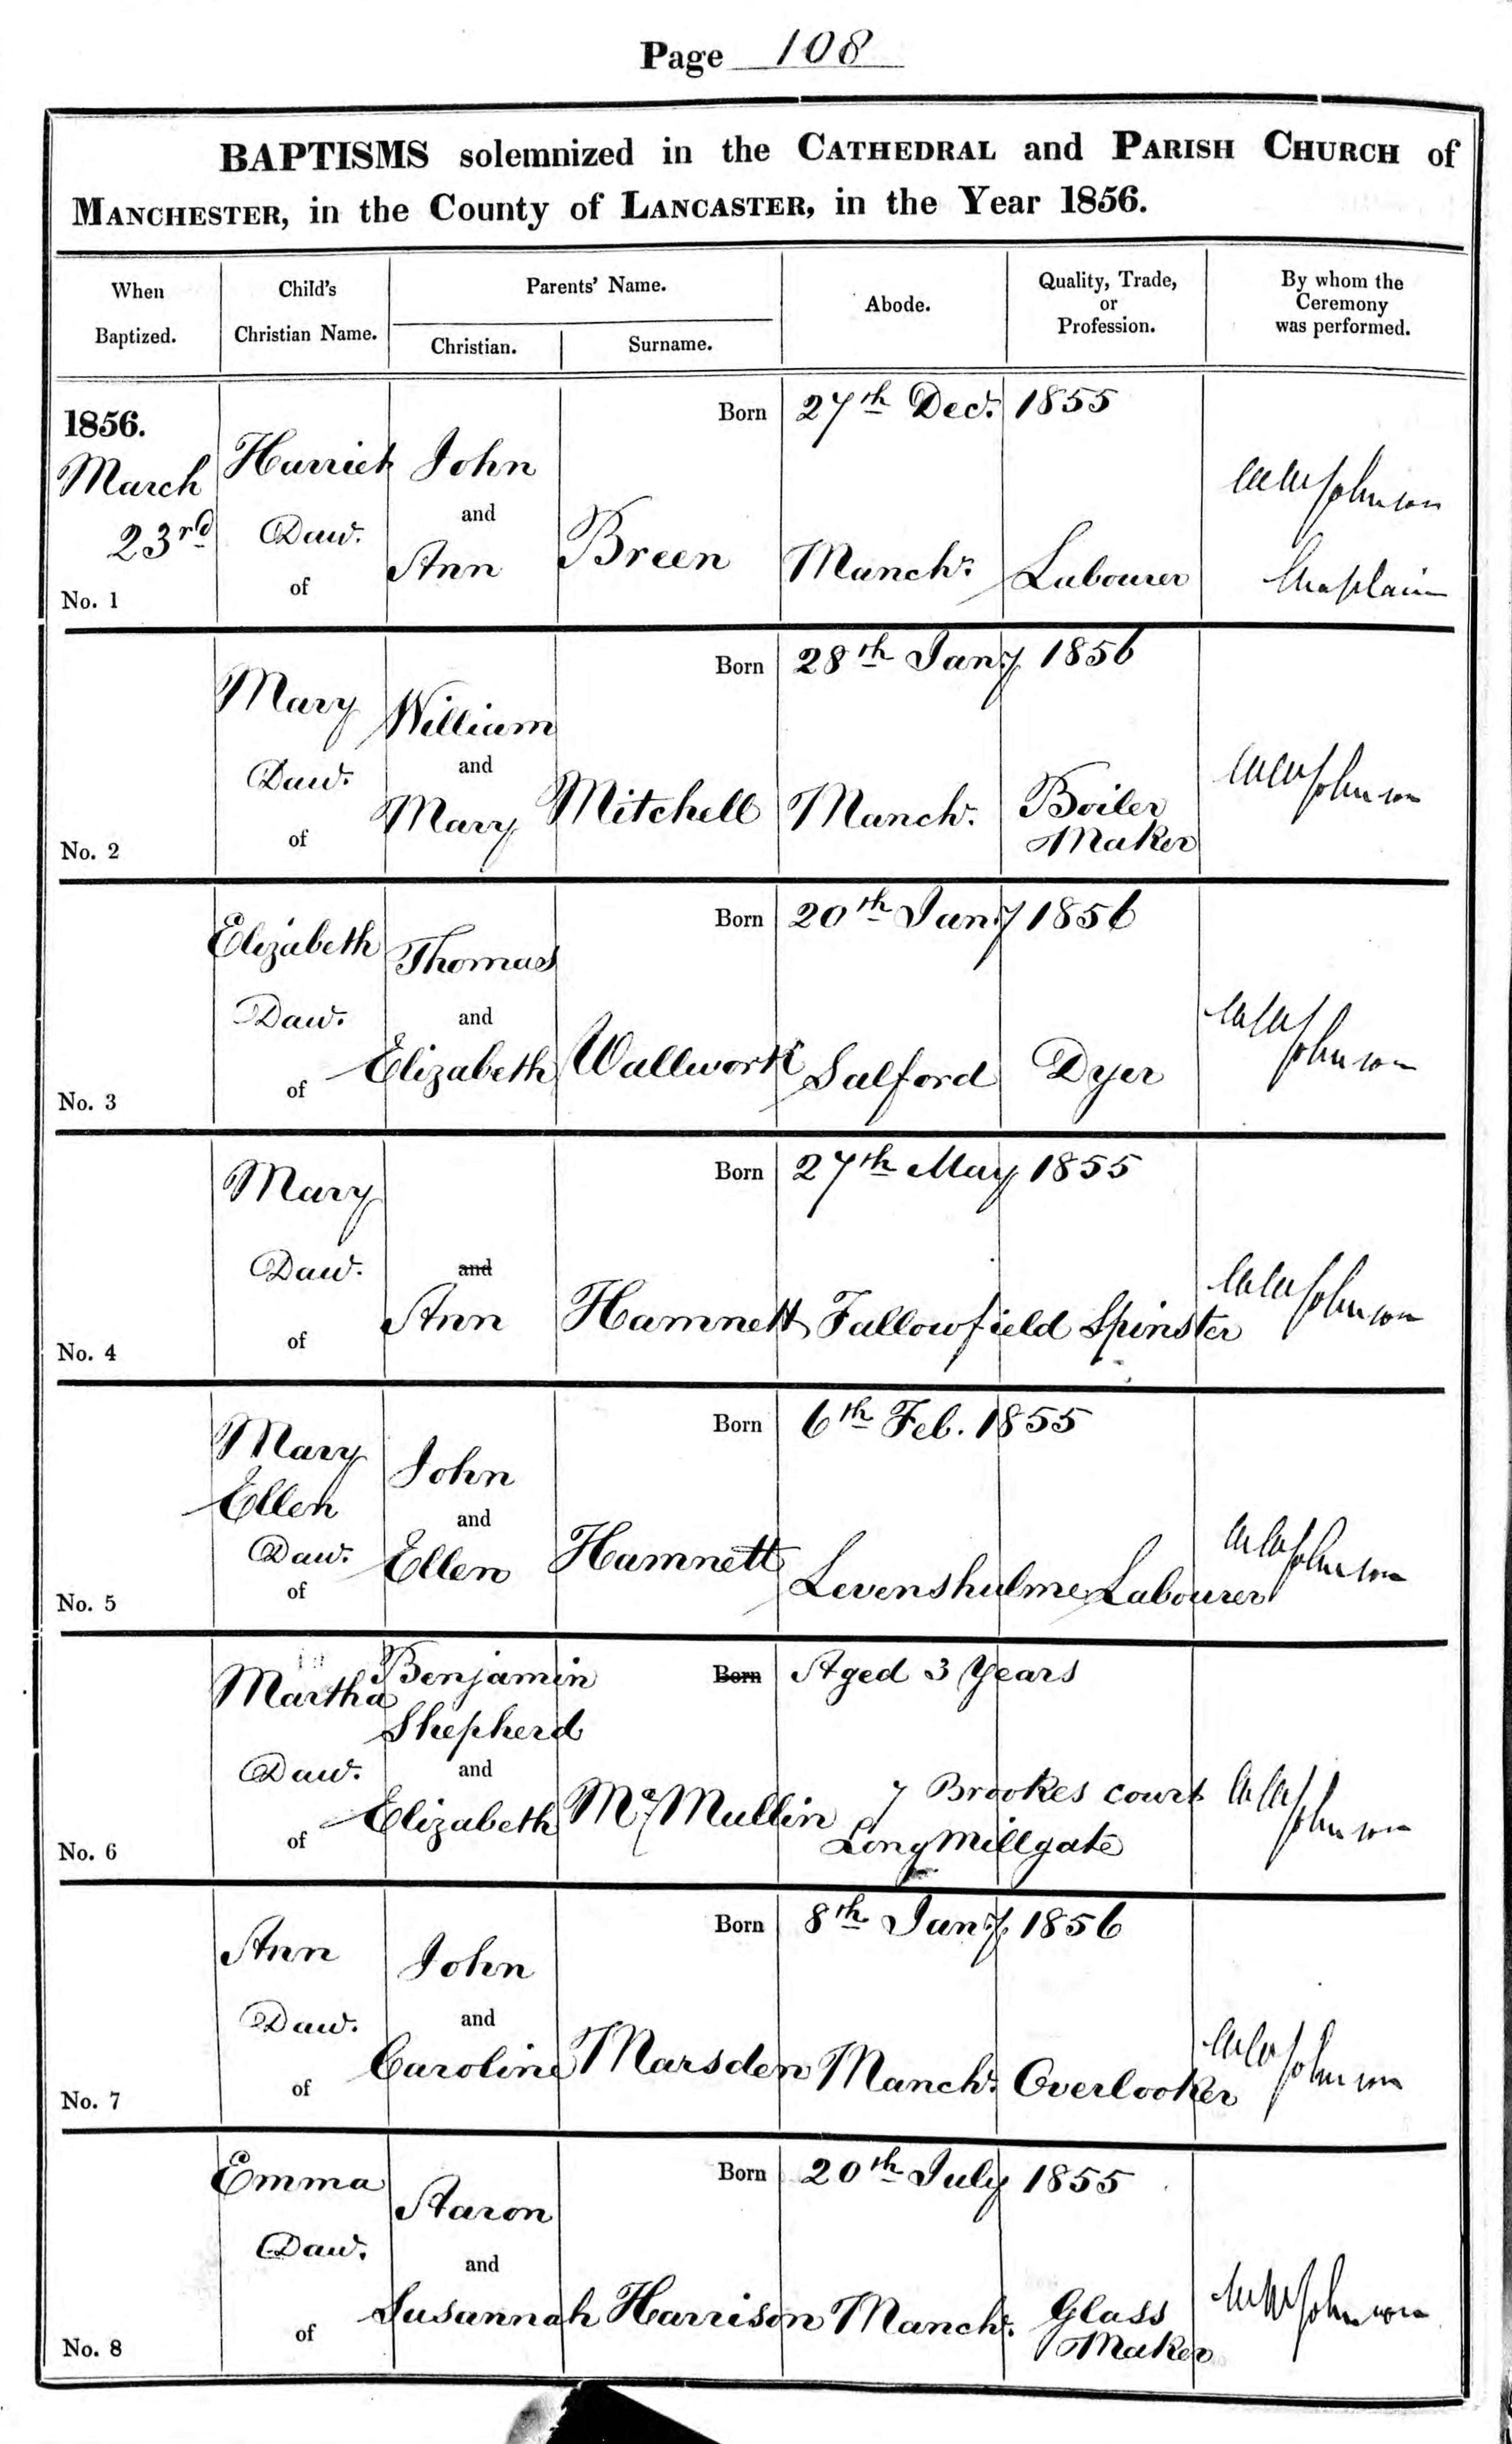 Page 108
BAPTISMS solemnized in the CATHEDRAL and PARISH CHURCH of
MANCHESTER, in the County of LANCASTER, in the Year 1856.
When Baptized.
Child's Christian Name.
Parents' Name.
Christian.
Surname.
Abode.
Quality, Trade, or Profession.
By whom the Ceremony was performed.
1856.
March
23rd
No. 1
Harriet
Daw.
of
John
and
Ann
Breen
Born 27th Decr. 1855
Manchr.
Labourer
Johnson
Chaplain
No. 2
Mary
Daw.
of
William
and
Mary
Mitchell
Born 28th Jany. 1856
Manchr.
Boiler
Maker
Johnson
No. 3
Elizabeth
Daw.
of
Thomas
and
Elizabeth
Wallwork
Born 20th Jany 1856
Salford
Dyer
Johnson
No. 4
Mary
Daw.
of
and
Ann
Hamnett
Born 27th May 1855
Fallowfield
Spinster
Johnson
No. 5
Mary
Ellen
Daw.
of
John
and
Ellen
Hamnett
Born 6th Feb. 1855
Levenshulme
Labourer
Johnson
No. 6
Martha
Daw.
of
Benjamin
Shepherd
and
Elizabeth
McMullin
Born Aged 3 Years
7 Brookes court
Long Millgate
Johnson
No. 7
Ann
Daw.
of
John
and
Caroline
Marsden
Born 8th Jany. 1856
Manchr.
Overlooker
Johnson
No. 8
Emma
Daw.
of
Aaron
and
Susannah
Harrison
Born 20th July 1855
Manchr.
Glass
Maker
Johnson